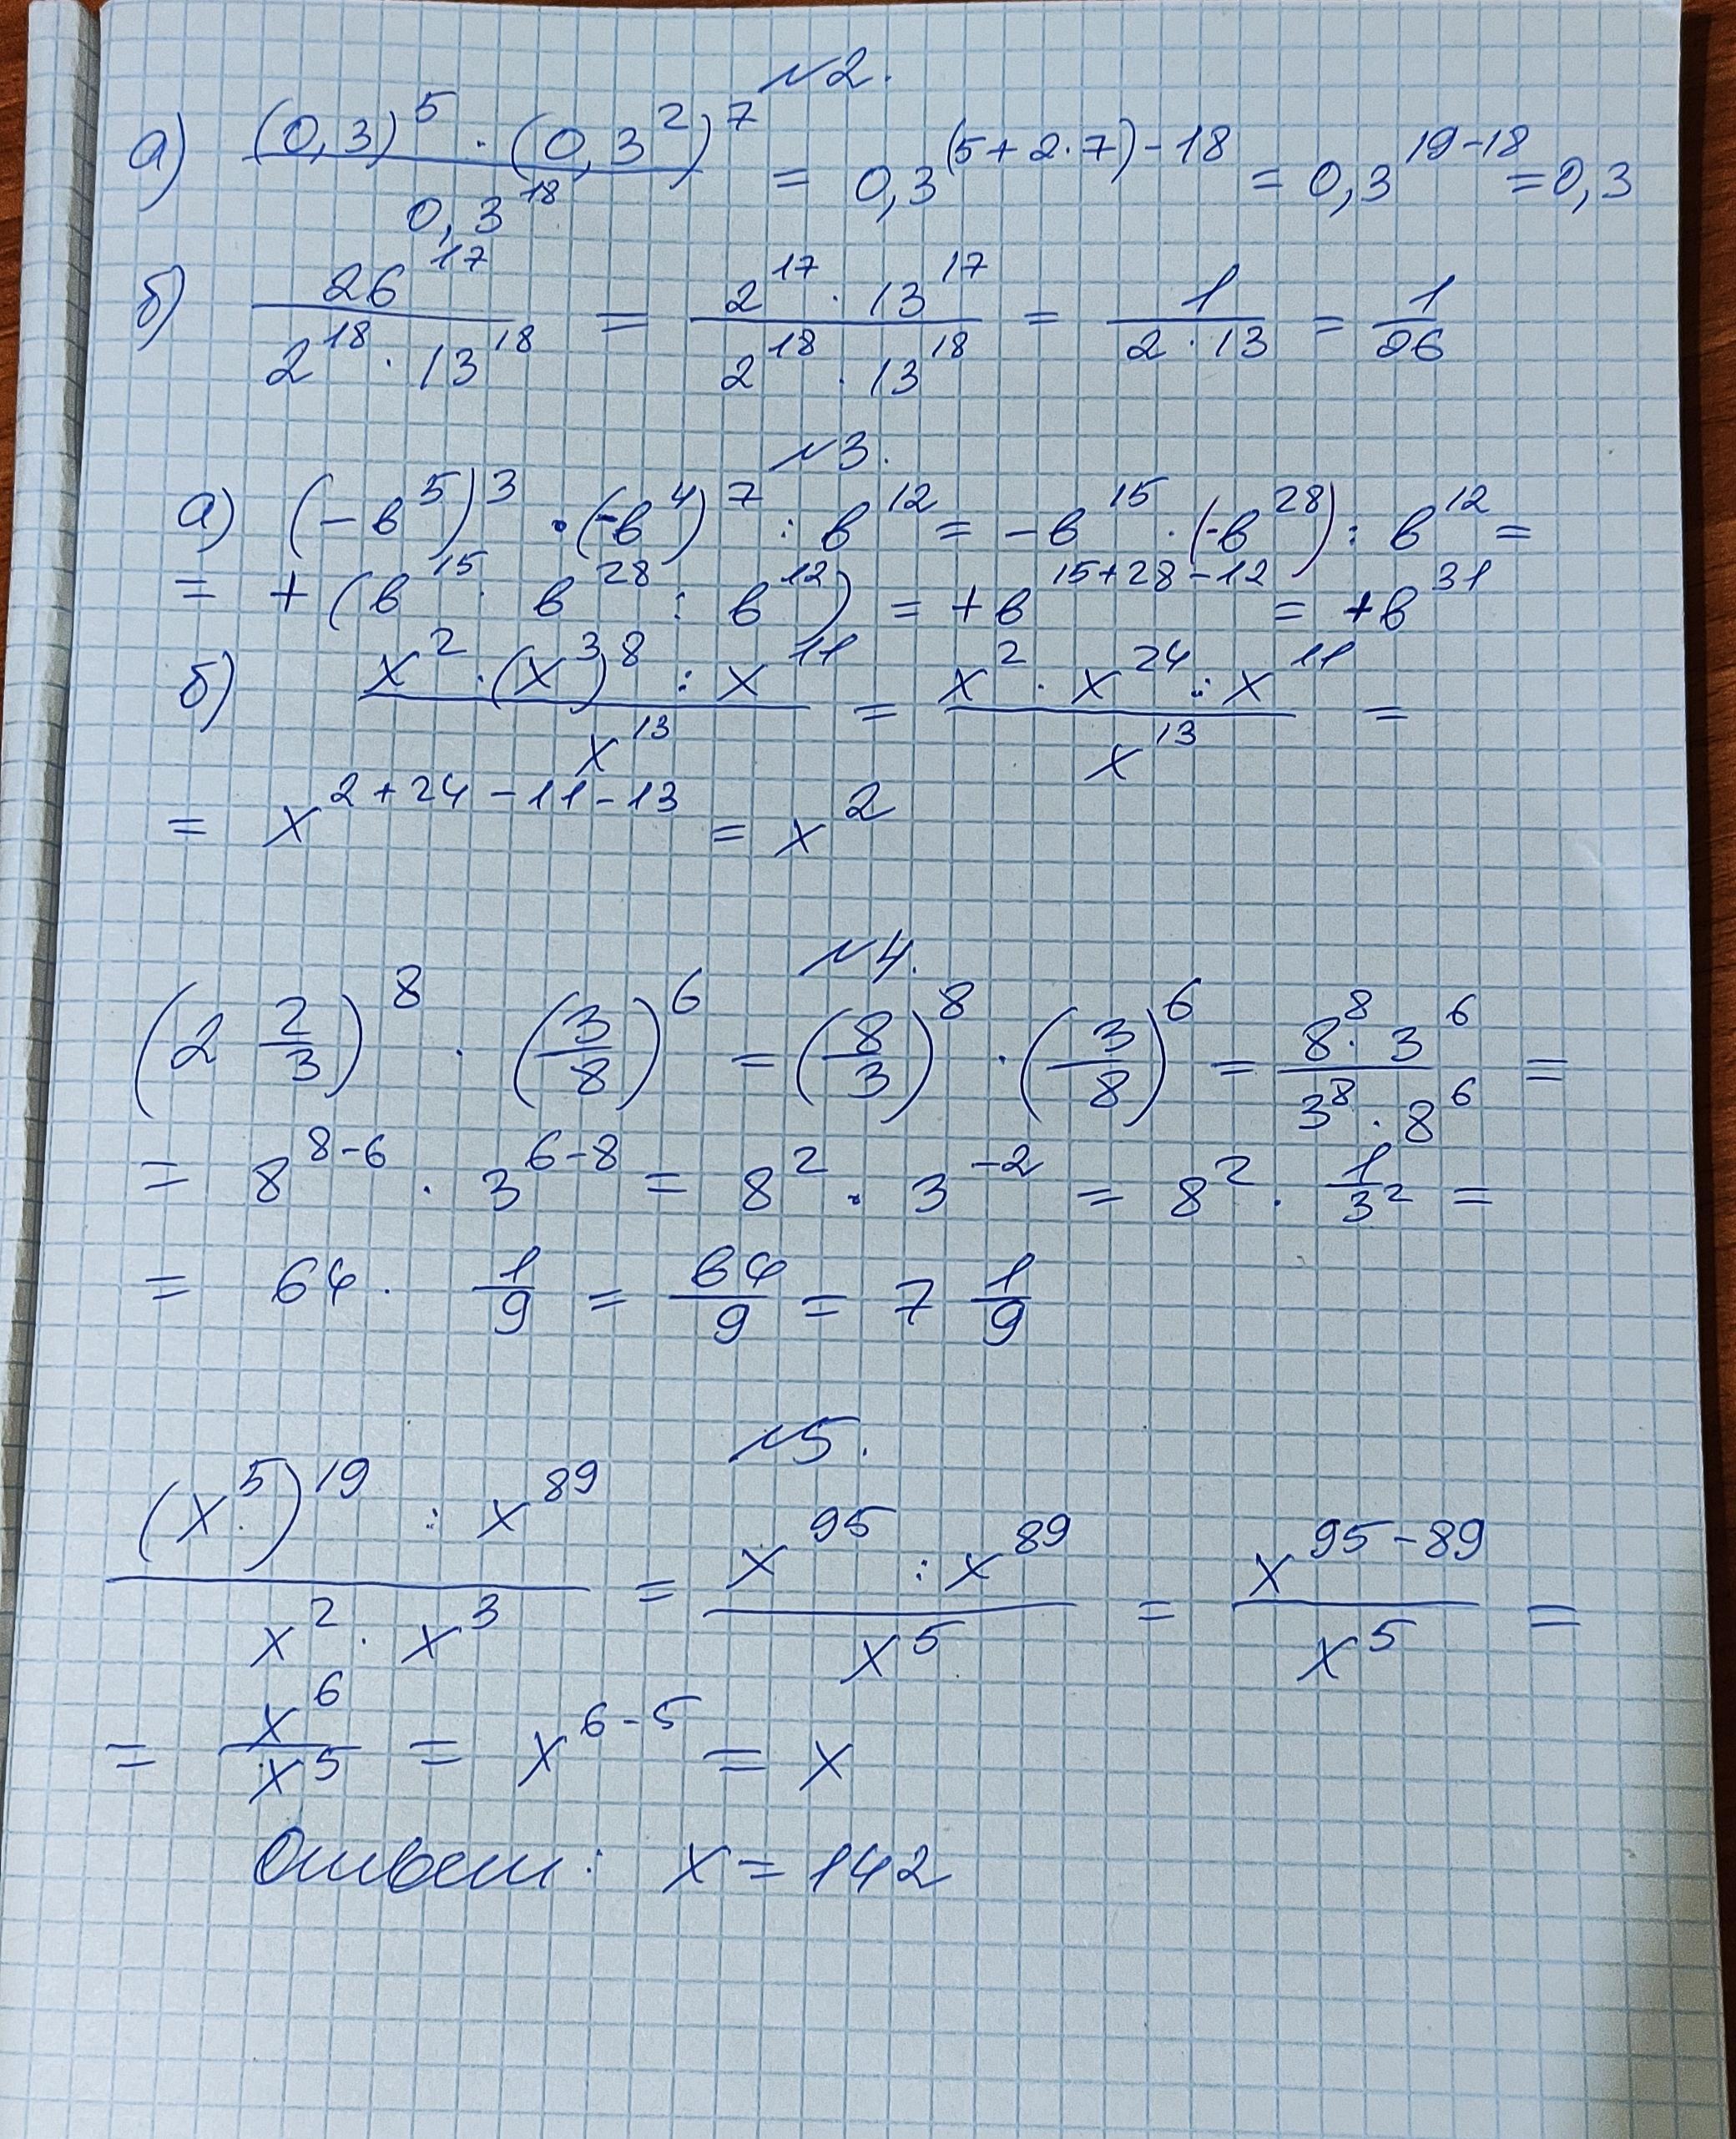 №2.
а) ((0,3)^5 · (0,3^2)^7) / 0,3^18 = 0,3^((5+2·7)-18) = 0,3^(19-18) = 0,3
б) 26^17 / (2^18 · 13^18) = (2^17 · 13^17) / (2^18 · 13^18) = 1 / (2 · 13) = 1/26
№3.
а) (-в^5)^3 · (-в^4)^7 : в^12 = -в^15 · (-в^28) : в^12 =
= +(в^15 · в^28 : в^12) = +в^(15+28-12) = +в^31
б) (x^2 · (x^3)^8 : x^11) / x^13 = (x^2 · x^24 : x^11) / x^13 =
= x^(2+24-11-13) = x^2
№4.
(2 2/3)^8 · (3/8)^6 = (8/3)^8 · (3/8)^6 = (8^8 · 3^6) / (3^8 · 8^6) =
= 8^(8-6) · 3^(6-8) = 8^2 · 3^(-2) = 8^2 · 1/3^2 =
= 64 · 1/9 = 64/9 = 7 1/9
№5.
((x^5)^19 : x^89) / (x^2 · x^3) = (x^95 : x^89) / x^5 = x^(95-89) / x^5 =
= x^6 / x^5 = x^(6-5) = x
Ответ: x = 142